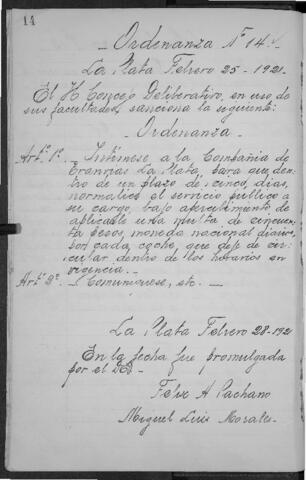 14
Ordenanza Nº 14.
La Plata Febrero 25-1921.
El H. Concejo Deliberativo, en uso de
sus facultades, sanciona la siguiente:
Ordenanza.
Art.º 1º. Intímese a la Compañia de
Tranvias La Plata, para que den-
tro de un plazo de cinco dias,
normalice el servicio público a
su cargo, bajo apercibimiento de
aplicarle una multa de cincuen-
ta pesos, moneda nacional diarios,
por cada coche, que deje de cir-
cular dentro de los horarios en
vigencia.
Art.º 2º. Comuníquese, etc.
La Plata Febrero 28-1921
En la fecha fue promulgada
por el D.E.
Felix A Pachano
Miguel Luis Morales